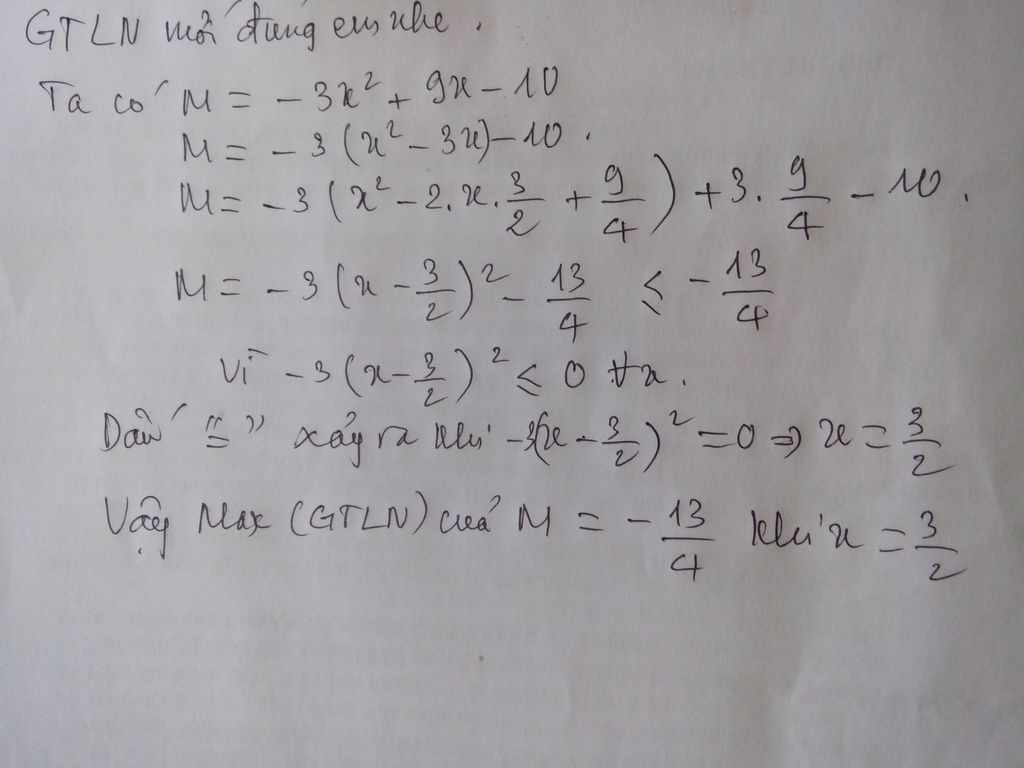 GTLN mới đúng em nhé.
Ta có M = -3x² + 9x - 10
M = -3(x² - 3x) - 10.
M = -3(x² - 2.x.3/2 + 9/4) + 3.9/4 - 10.
M = -3(x - 3/2)² - 13/4 ≤ -13/4
Vì -3(x - 3/2)² ≤ 0 ∀x.
Dấu "=" xảy ra khi -3(x - 3/2)² = 0 ⇒ x = 3/2
Vậy Max (GTLN) của M = -13/4 khi x = 3/2